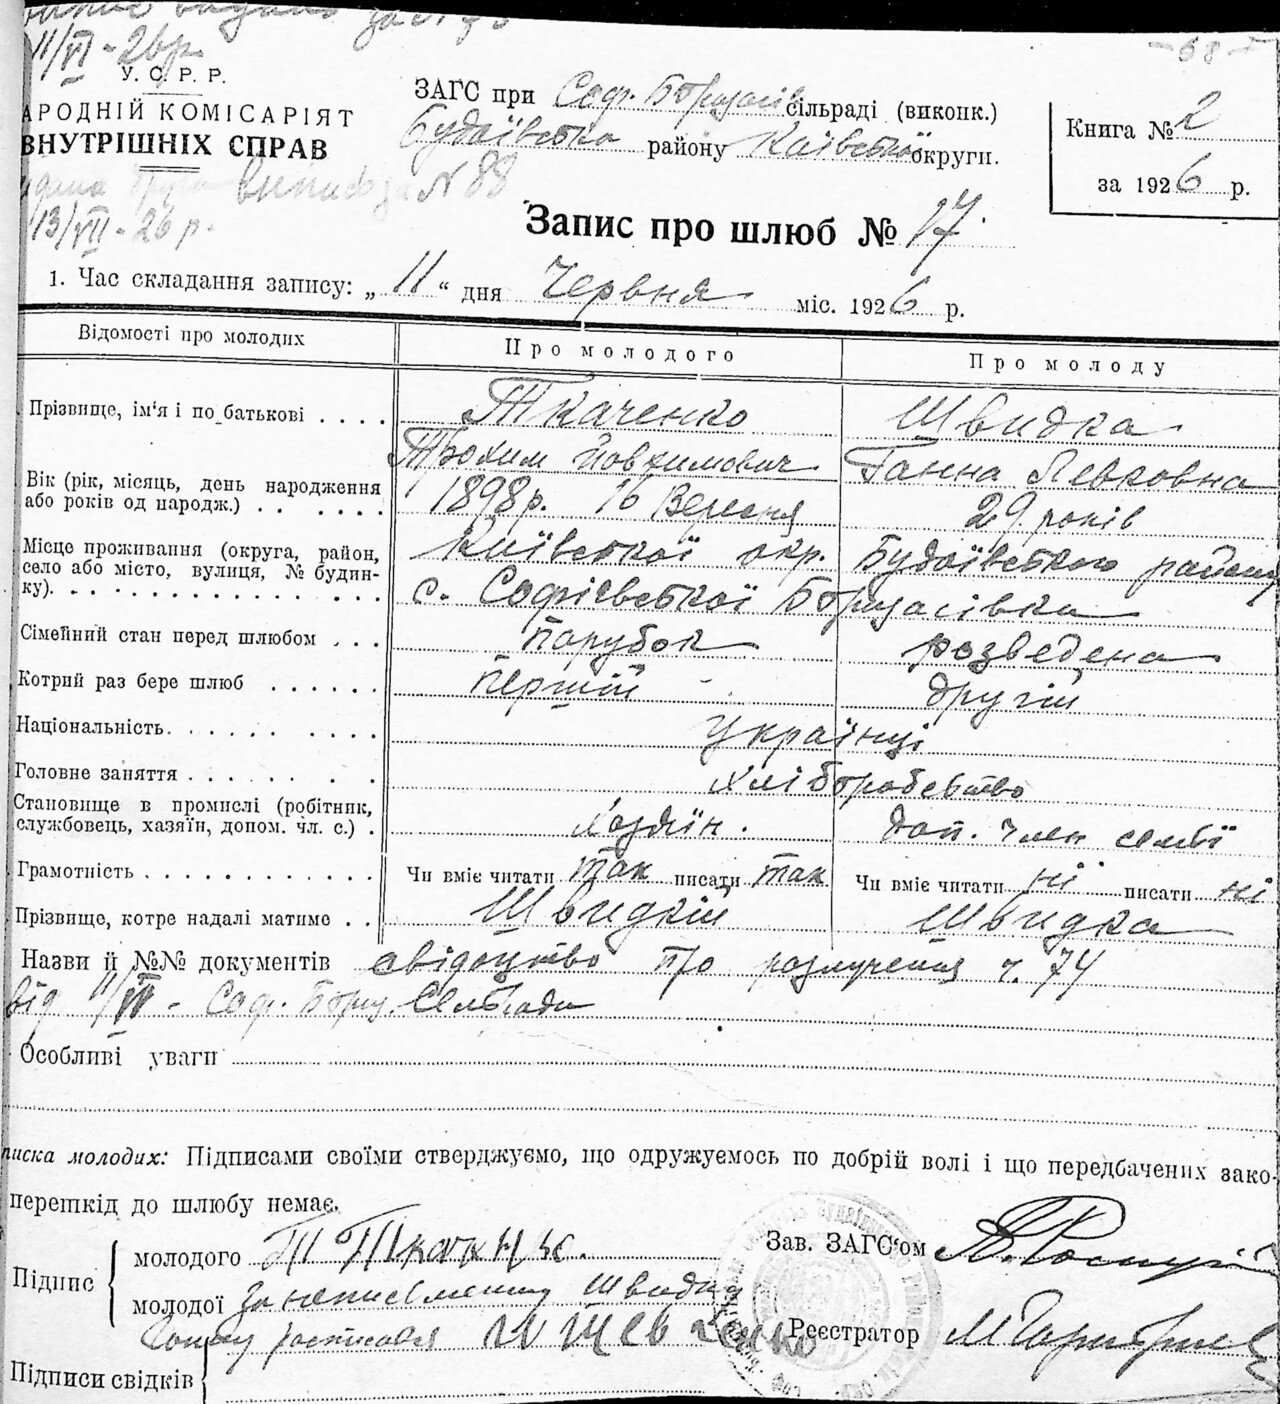 11/VI - 26 р.
У. С. Р. Р.
АРОДНІЙ КОМІСАРІЯТ
ВНУТРІШНІХ СПРАВ
виписка за N 88
13/VII - 26 р.
- 68 -
ЗАГС при Соф. Борщагів сільраді (виконк.)
Будаївська району Київської округи.
Книга № 2
за 1926 р.
Запис про шлюб № 17.
1. Час складання запису: „ 11 “ дня Червня міс. 1926 р.
Відомості про молодих Про молодого Про молоду
Прізвище, ім'я і по батькові . . . . Ткаченко Швидка
Трохим Йовхимович Ганна Левковна
Вік (рік, місяць, день народження або років од народж.) . . . . . . 1898 р. 16 Вересня 29 років
Місце проживання (округа, район, село або місто, вулиця, № будинку). Київської окр. Будаївського району
с. Софієвської Борщагівка
Сімейний стан перед шлюбом . . . Парубок розведена
Котрий раз бере шлюб . . . . . . Перший другий
Національність. . . . . . . . . . Українці
Головне заняття . . . . . . . . Хліборобство
Становище в промислі (робітник, службовець, хазяїн, допом. чл. с.) . Хазяїн. доп. член семьї
Грамотність . . . . . . . . . . . . Чи вміє читати так писати так Чи вміє читати ні писати ні
Прізвище, котре надалі матиме . . Швидкий Швидка
Назви й №№ документів свідоцтво про разлучення ч. 74
від 11/VI - Соф. Борщ. Сельради
Особливі уваги
писка молодих: Підписами своїми стверджуємо, що одружуємось по добрій волі і що передбачених зако-
перешкід до шлюбу немає.
Підпис
молодого Т Ткаченко.
молодої За неписьменну Швидку
росписався Шевченко
Підписи свідків
Зав. ЗАГС'ом
Реєстратор